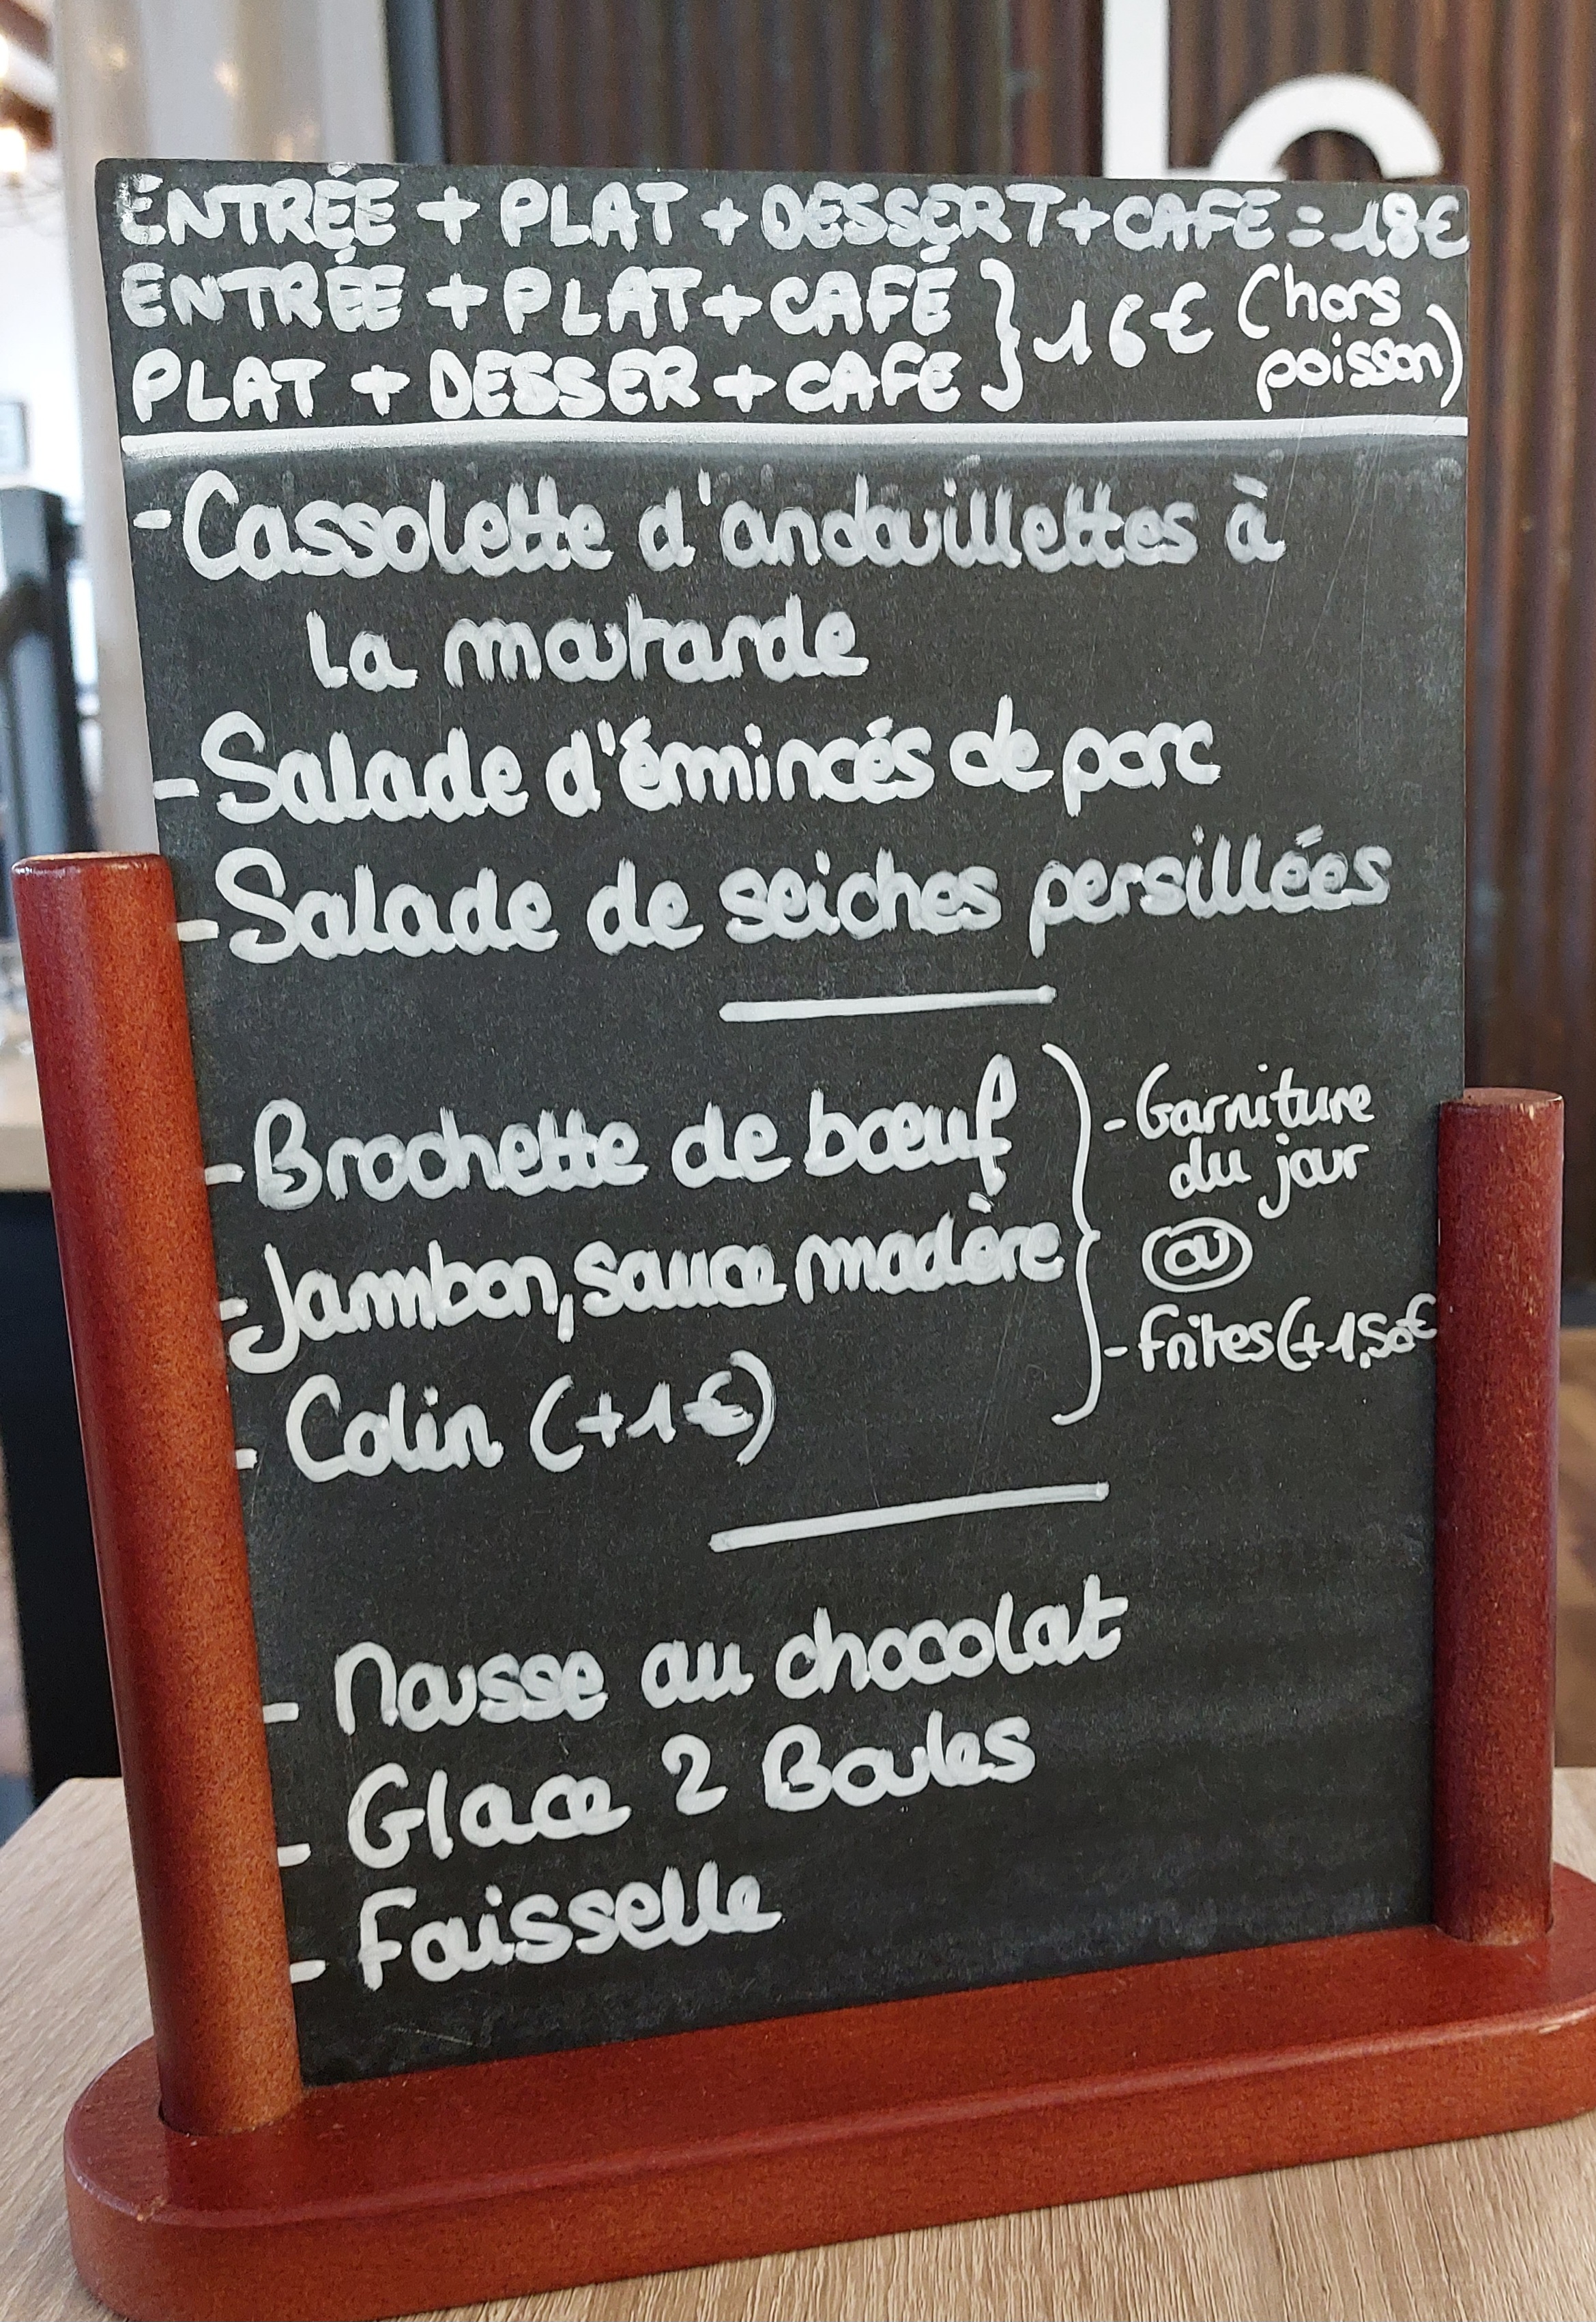 ENTRÉE + PLAT + DESSERT + CAFÉ = 18€
ENTRÉE + PLAT + CAFÉ
PLAT + DESSER + CAFE
} 16€ (hors
poisson)
- Cassolette d'andouillettes à
la moutarde
- Salade d'émincés de porc
- Salade de seiches persillées
- Brochette de bœuf
- Jambon, sauce madère
- Colin (+1€)
- Garniture
du jour
ou
- Frites (+1,50€
- Mousse au chocolat
- Glace 2 Boules
- Faisselle